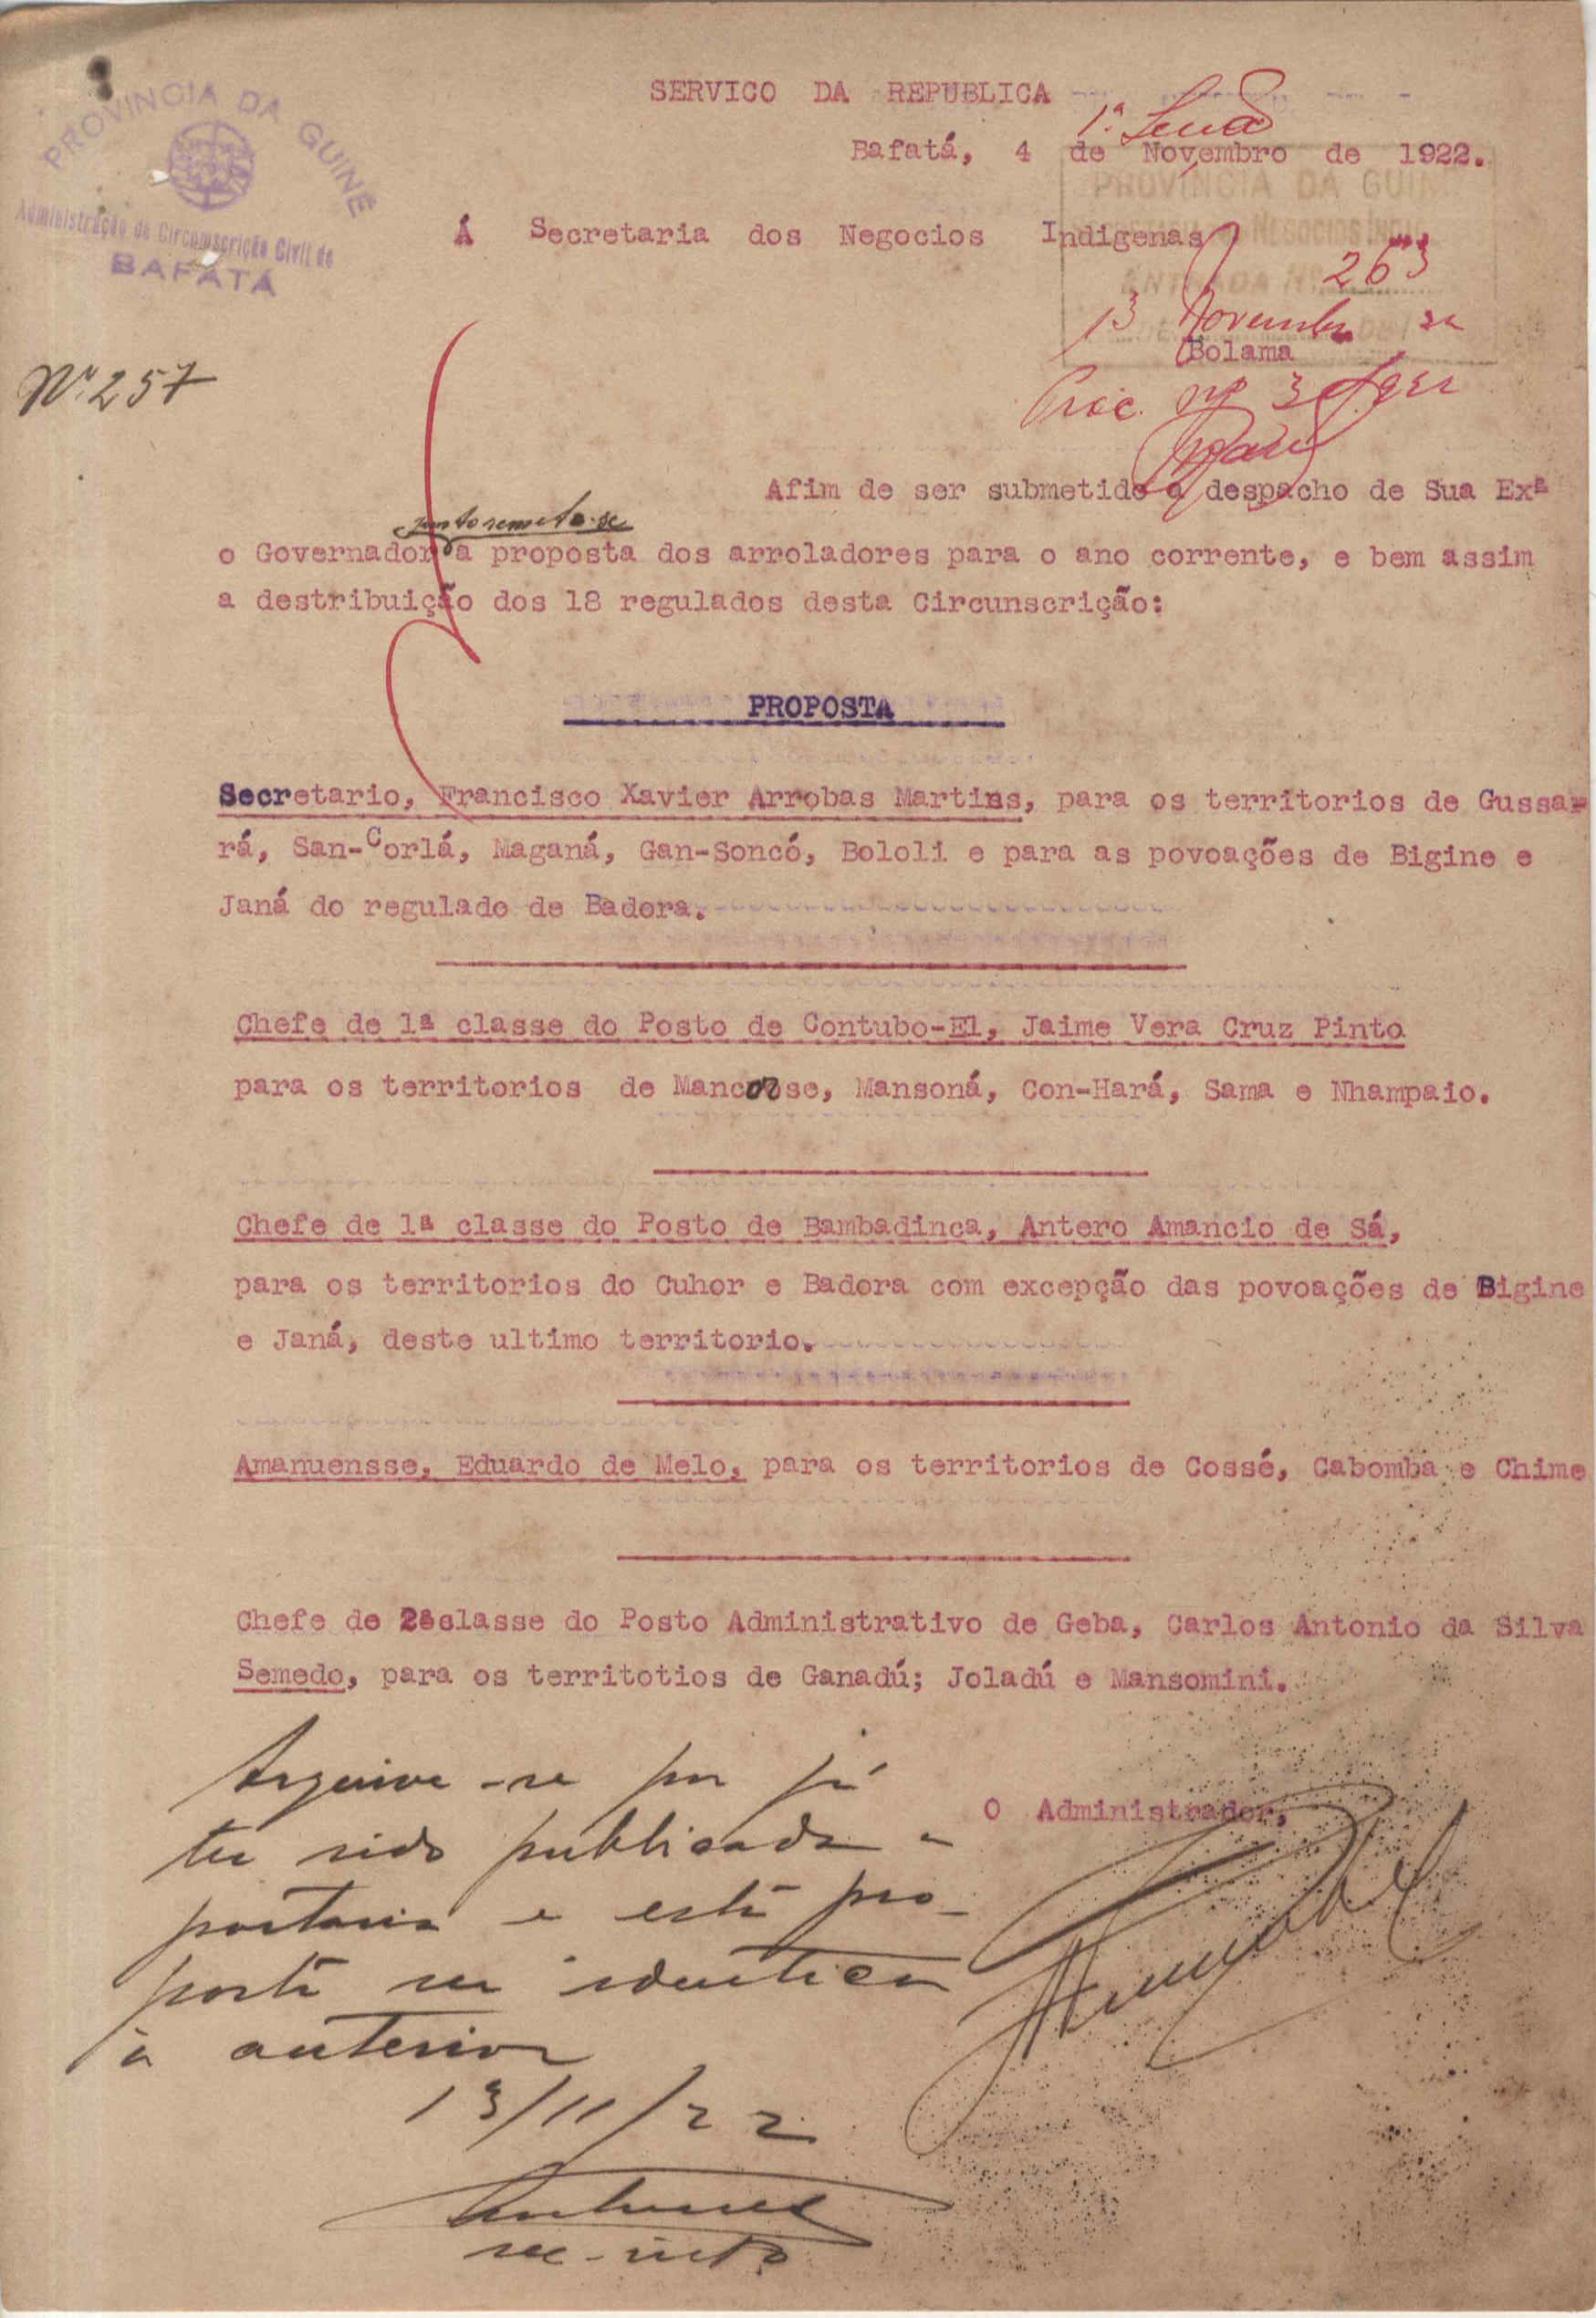 PROVINCIA DA GUINÉ
Administração da Circumscrição Civil de
BAFATÁ
SERVICO DA REPUBLICA
1.ª
Bafatá, 4 de Novembro de 1922.
PROVINCIA DA GUINÉ
Á Secretaria dos Negocios Indigenas
NEGOCIOS INDI
ENTRADA Nº 263
13 Novembro 22
Bolama
Nº 257
Proc. nº 3
Afim de ser submetido a despacho de Sua Exª
junto remete-se
o Governador a proposta dos arroladores para o ano corrente, e bem assim
a destribuição dos 18 regulados desta Circunscrição:
PROPOSTA
Secretario, Francisco Xavier Arrobas Martins, para os territorios de Gussa-
rá, San-Corlá, Maganá, Gan-Soncó, Bololi e para as povoações de Bigine e
Janá do regulado de Badora.
Chefe de 1ª classe do Posto de Contubo-El, Jaime Vera Cruz Pinto
para os territorios de Mancrosse, Mansoná, Con-Hará, Sama e Nhampaio.
Chefe de 1ª classe do Posto de Bambadinca, Antero Amancio de Sá,
para os territorios do Cuhor e Badora com excepção das povoações de Bigine
e Janá, deste ultimo territorio.
Amanuensse, Eduardo de Melo, para os territorios de Cossé, Cabomba e Chime
Chefe de 2ªclasse do Posto Administrativo de Geba, Carlos Antonio da Silva
Semedo, para os territotios de Ganadú; Joladú e Mansomini.
Arquive-se por já
ter sido publicada a
portaria e esta pro-
posta ser identica
à anterior
13/11/22
O Administrador,